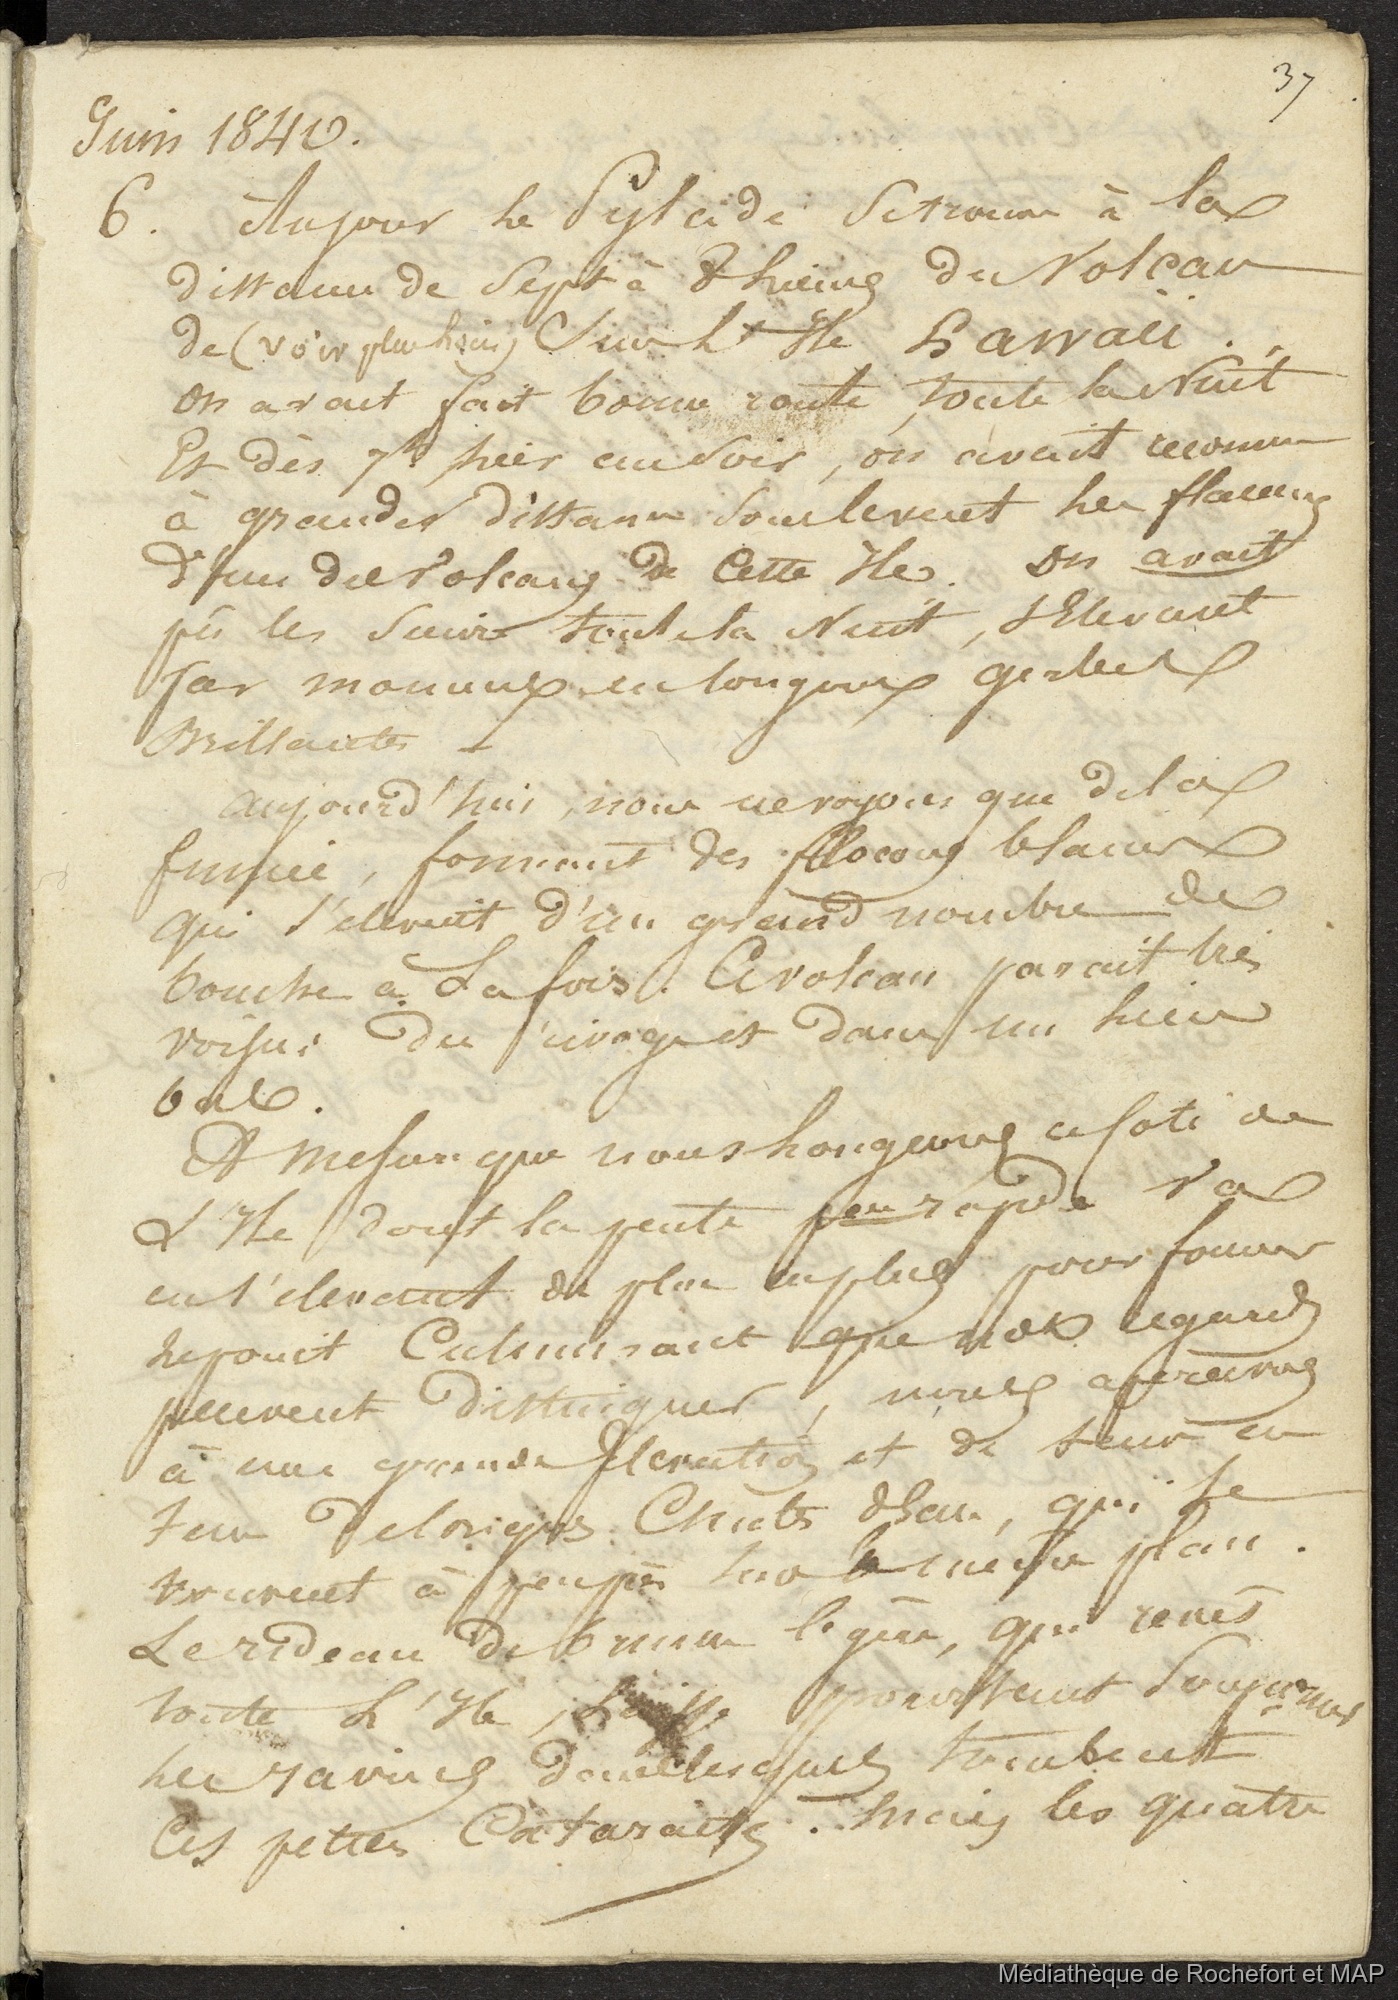 37
Juin 1840.
6. Au jour le Pylade se trouve à la
distance de sept à 8 lieues du Volcan
de (voir plus loin) Sur l'Ile Hawaii.
on avait fait bonne route toute la Nuit
Et dès 7h hier au soir, on avait reconnu
à grande distance Sous le vent les flammes
d'un des Volcans de Cette Ile. on avait
pû les Suivre toute la Nuit, s'Elevant
par momens en longues gerbes
Brillantes -
aujourd'hui, nous ne voyons que de la
fumée, formant des flocons blancs
qui s'élevent d'un grand nombre de
bouche à La fois. Ce volcan parait très
voisin du rivage et dans un lieu
bas.
A Mesure que nous longeons ce Coté de
L'Ile dont la pente peu rapide va
en s'élevant de plus en plus pour former
le point Culminant que nos regards
peuvent distinguer, nous apercevons
à une grande Elevation et de tems en
tems de longues Chutes d'Eau, qui se
trouvent à peu près sur le même plan.
Le rideau de brume légère, qui revêt
toute L'Ile, laisse pourtant Soupçonner
les ravins dans lesquels tombent
Ces petites Cataractes. Mais les quatre
Médiathèque de Rochefort et MAP